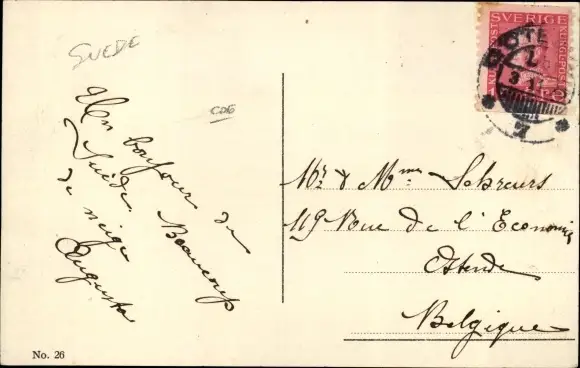 SUEDE
CDG
Un bonjour de
Suède. Beaucoup
de neige
Augusta
SVERIGE
GÖTE
2
3 1
7
Mr & Mme Schreurs
119 Rue de l'Economie
Ostende
Belgique
No. 26